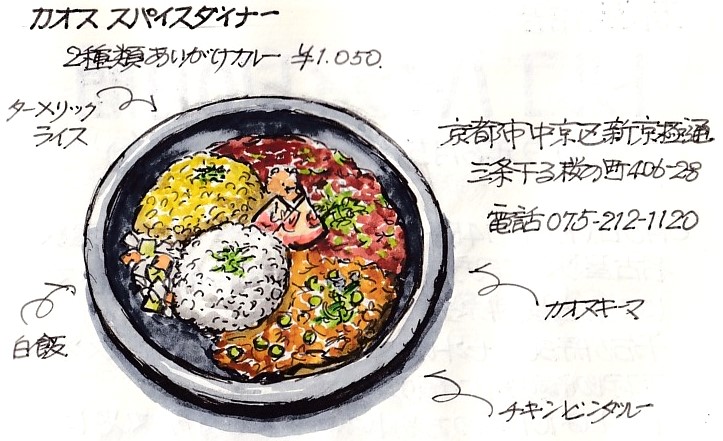 カオス スパイスダイナー
2種類あいがけカレー ¥1.050.
ターメリック
ライス
京都市中京区新京極通
三条下る桜の町406-28
電話075-212-1120
カオスキーマ
白飯
チキンビンダルー